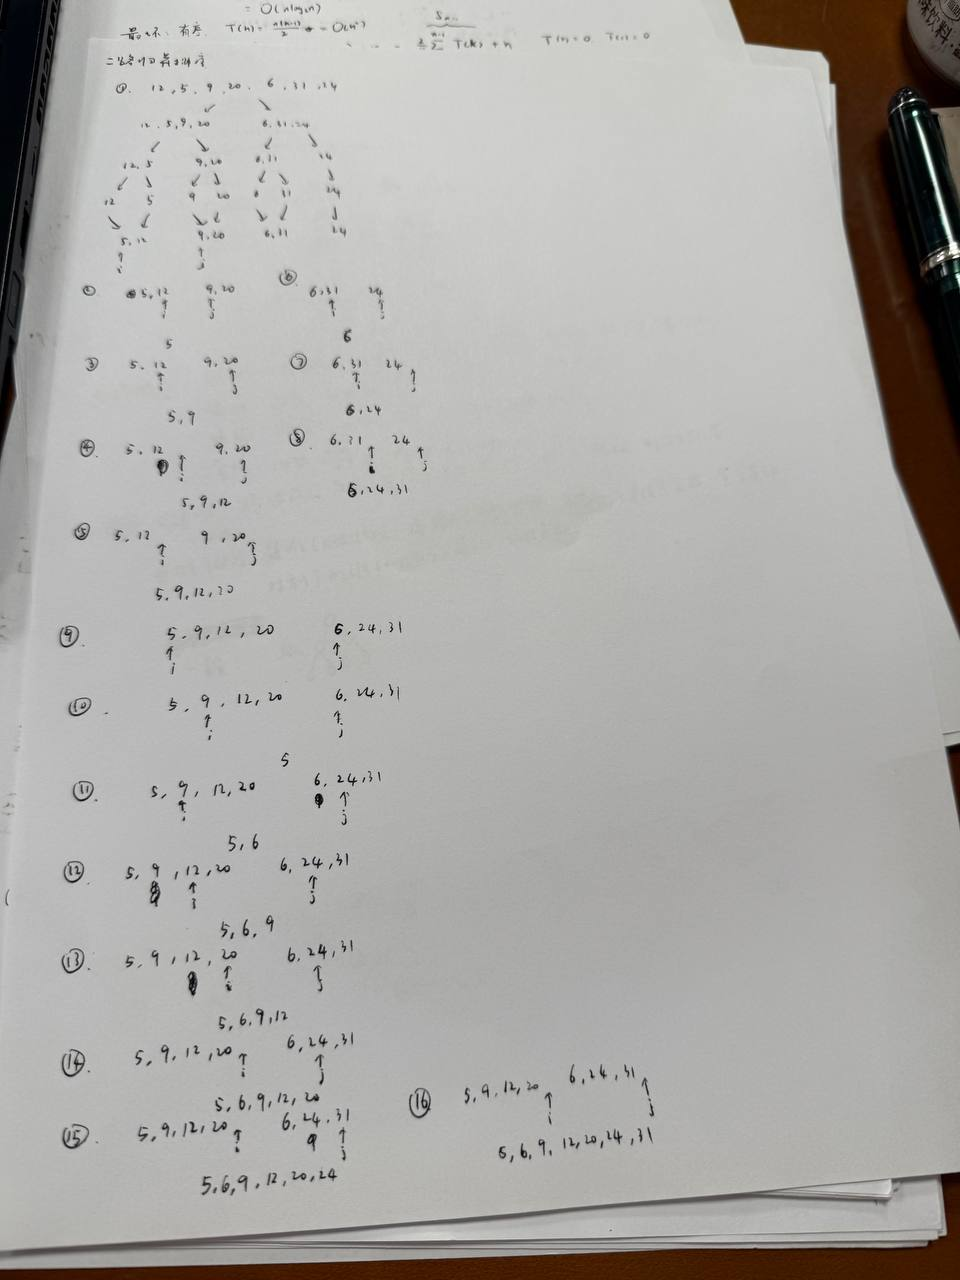 = O(nlogn)
最坏: 有序 T(n) = n(n-1)/2 = O(n²)
T(k) + n T(1)=0 T(0)=0
二路归并排序
①. 12, 5, 9, 20, 6, 31, 24
12, 5, 9, 20 6, 31, 24
12, 5 9, 20 6, 31 24
12 5 9 20 6 31 24
5, 12 9, 20 6, 31 24
i j
② 5, 12 9, 20
i j
5
③ 5, 12 9, 20
i j
5, 9
④. 5, 12 9, 20
i j
5, 9, 12
⑤ 5, 12 9, 20
i j
5, 9, 12, 20
⑥ 6, 31 24
i j
6
⑦ 6, 31 24
i j
6, 24
⑧. 6, 31 24
i j
6, 24, 31
⑨. 5, 9, 12, 20 6, 24, 31
i j
⑩. 5, 9, 12, 20 6, 24, 31
i j
5
⑪. 5, 9, 12, 20 6, 24, 31
i j
5, 6
⑫. 5, 9, 12, 20 6, 24, 31
i j
5, 6, 9
⑬. 5, 9, 12, 20 6, 24, 31
i j
5, 6, 9, 12
⑭. 5, 9, 12, 20 6, 24, 31
i j
5, 6, 9, 12, 20
⑮. 5, 9, 12, 20 6, 24, 31
i j
5, 6, 9, 12, 20, 24
⑯. 5, 9, 12, 20 6, 24, 31
i j
5, 6, 9, 12, 20, 24, 31